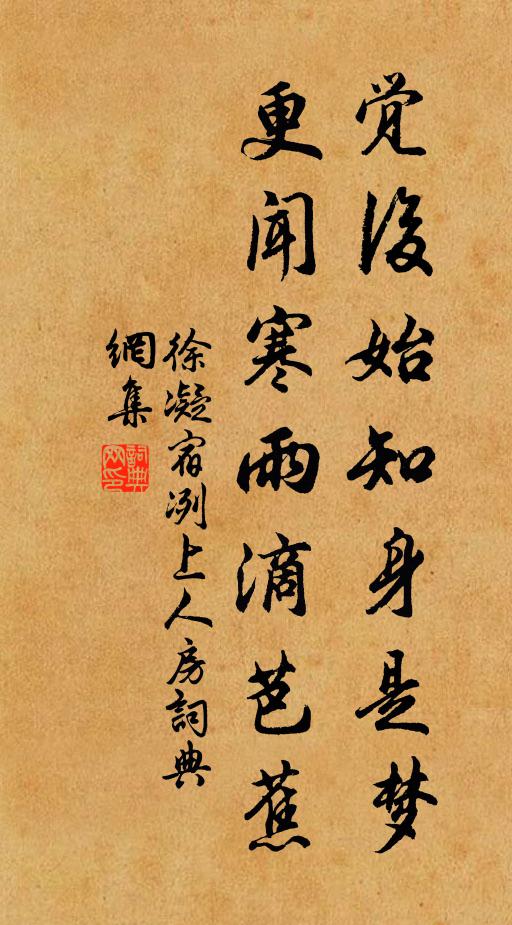 觉後始知身是梦
更闻寒雨滴芭蕉
徐凝宿冽上人房詞典
網集
詞典
网印